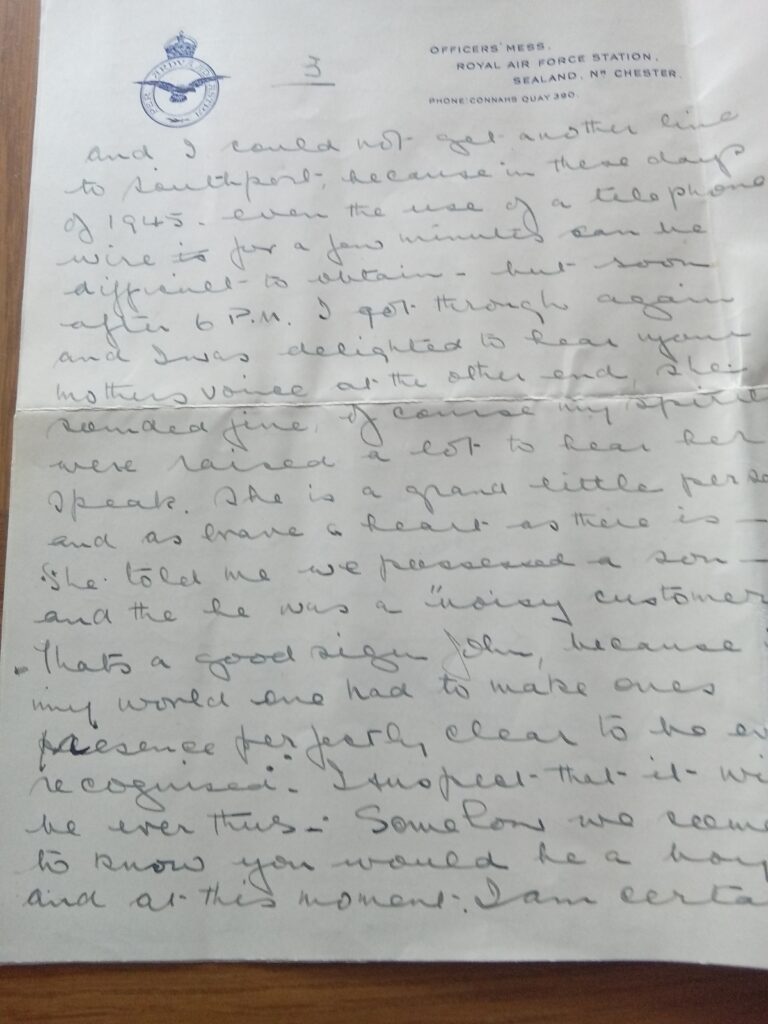 PER ARDUA AD ASTRA
3
OFFICERS' MESS,
ROYAL AIR FORCE STATION,
SEALAND, Nr CHESTER.
PHONE: CONNAHS QUAY 390.
and I could not get another line
to Southport, because in these days
of 1945. even the use of a telephone
wire is for a few minutes can be
difficult to obtain - but soon
after 6 P.M. I got through again
and I was delighted to hear your
mothers voice at the other end, she
sounded fine, of course my spirits
were raised a lot to hear her
speak. She is a grand little perso
and as brave a heart as there is -
She told me we possessed a son -
and the he was a "noisy customer
Thats a good sign John, because
my world one had to make ones
presence perfectly clear to be ev
recognised. I suspect that it wi
be ever thus -. Somehow we seeme
to know you would be a boy
and at this moment. I am certa